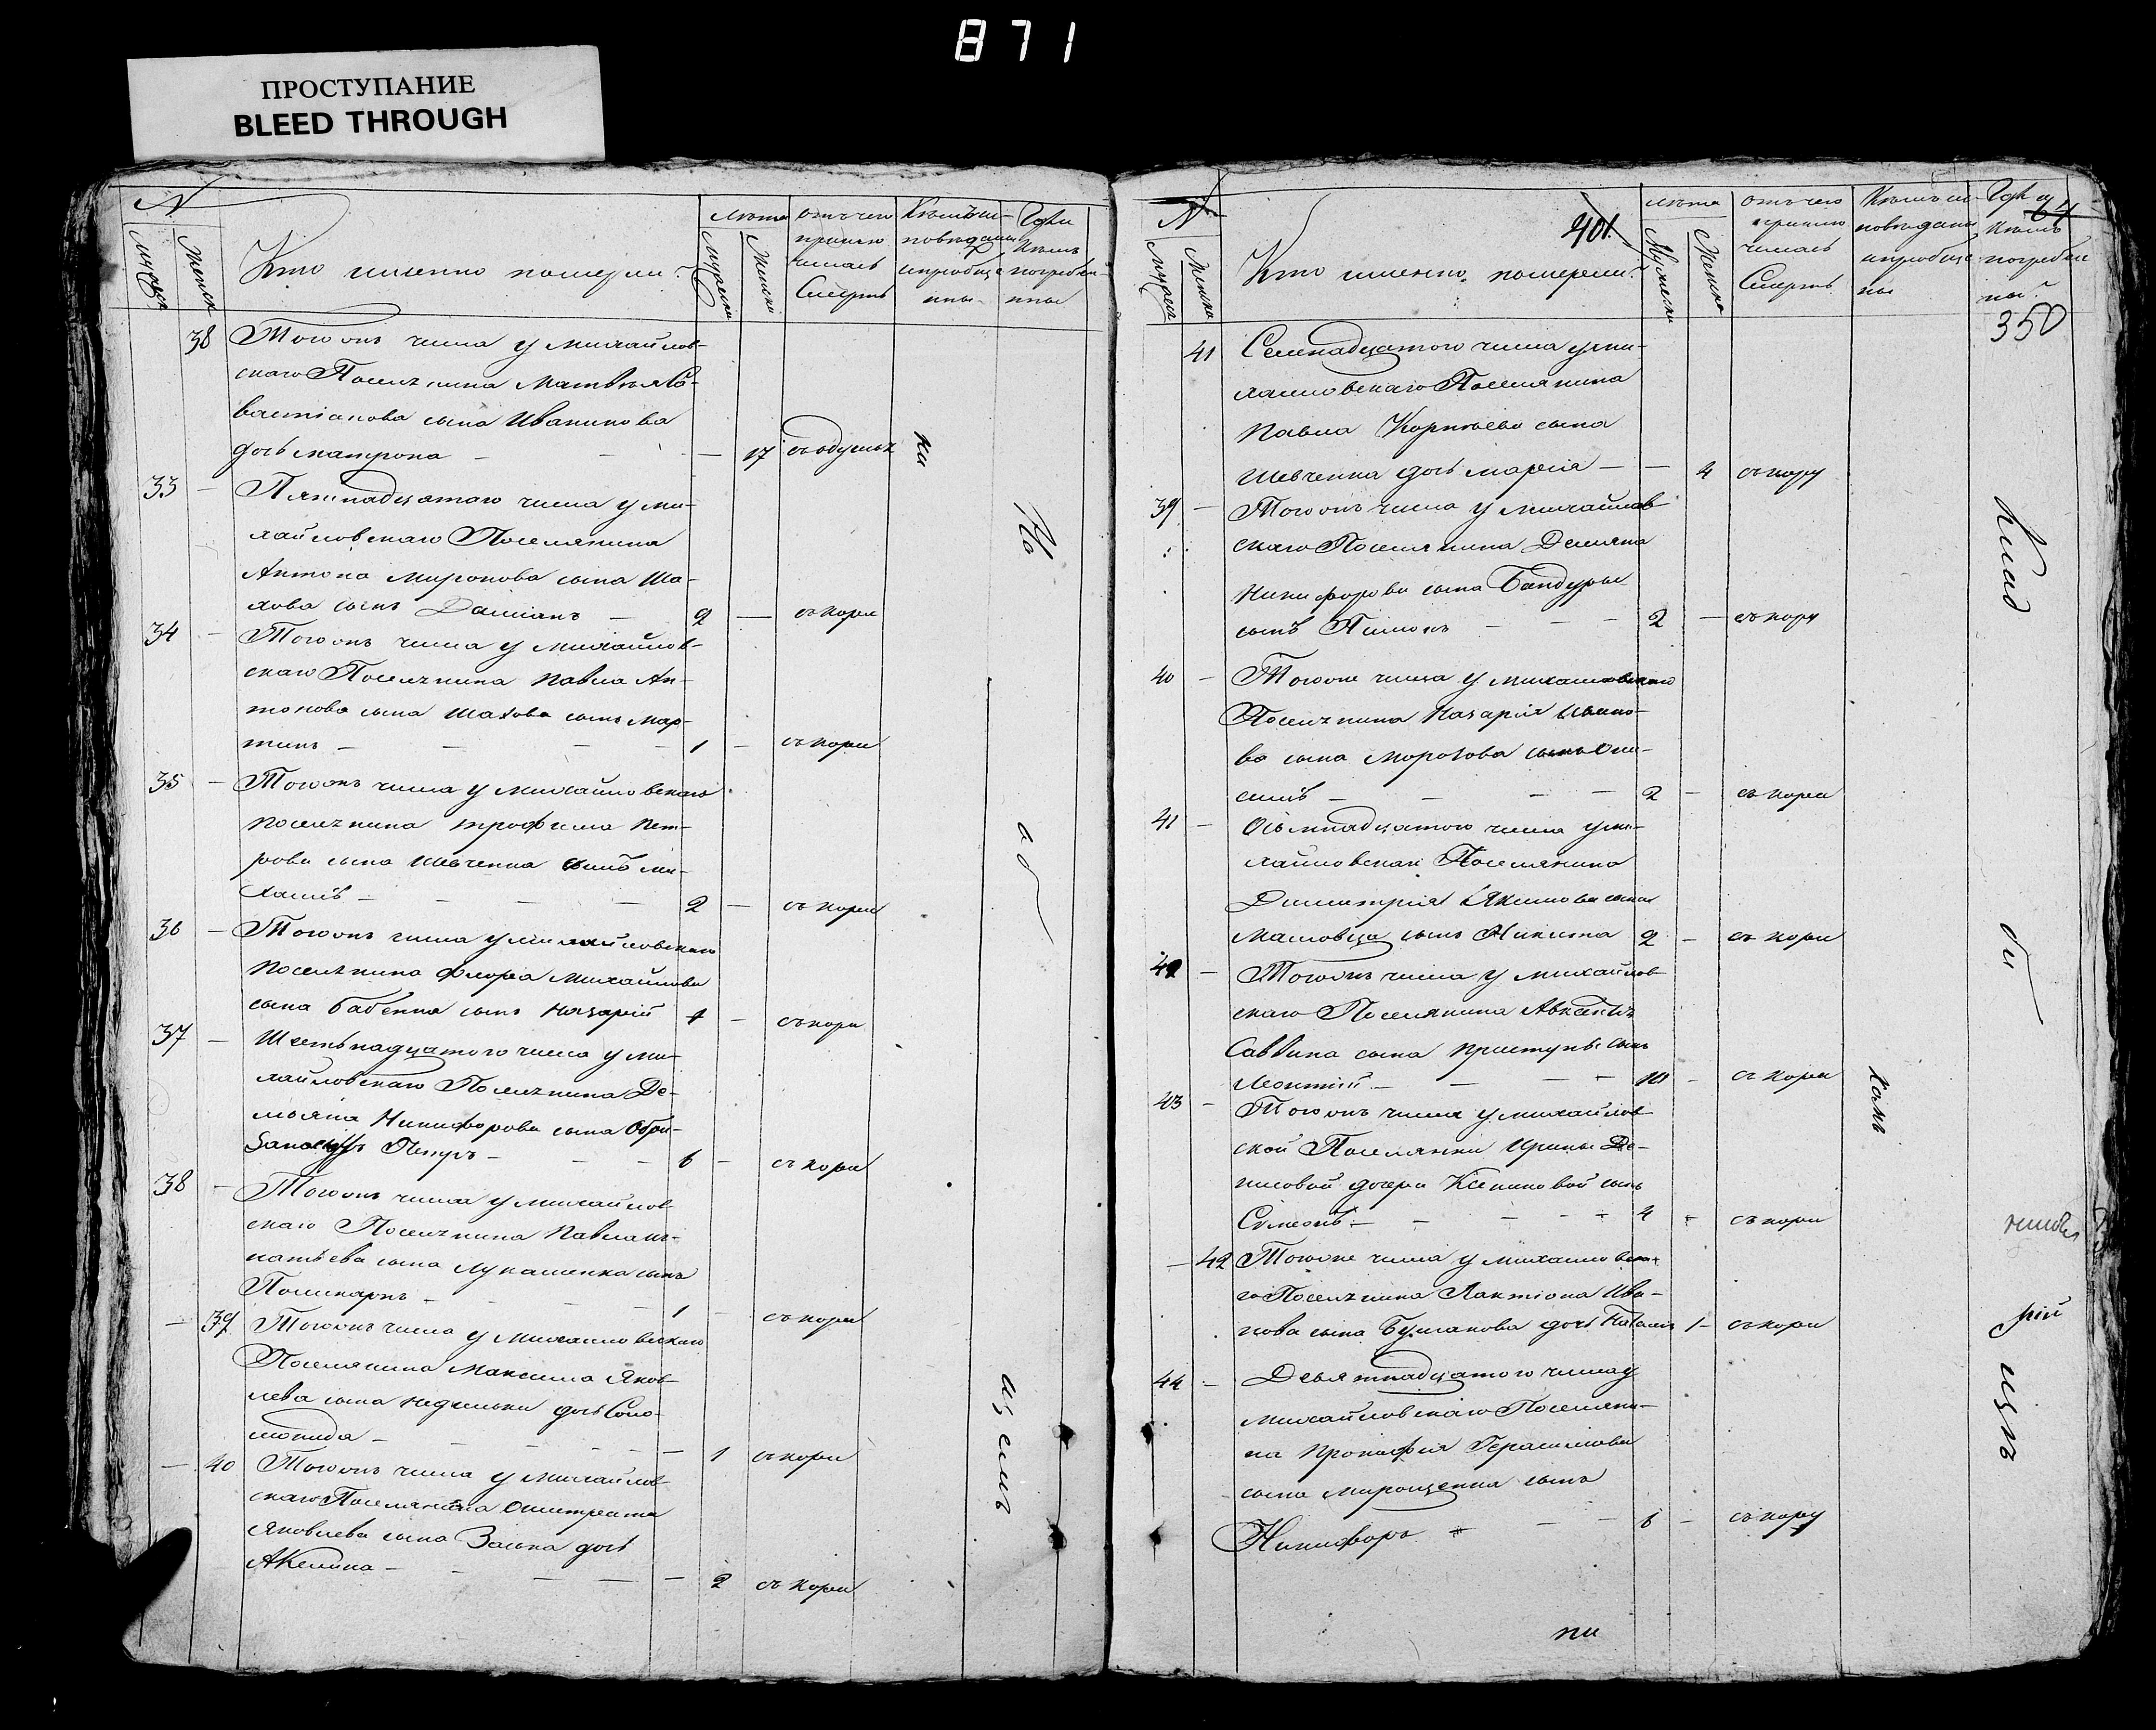 871
ПРОСТУПАНИЕ
BLEED THROUGH
N
Мужеск
Женск
Кто именно померли?
лѣта
Мужески
Женски
отъ чего
приключилась
Смерть
Кемъ ис-
поведаны
и приобще
ны
Где и
Кемъ
погребе-
ны
38 Того онъ числа у михайлов-
скаго Поселянина Матвѣя Са-
вастіанова сына Иваникова
дочь матрона — — — 17
33 — Пятнадцатаго числа у ми-
хайловскаго Поселянина
Антона миронова сына Ша-
хова сынъ Даміанъ — 2 — съ кори
34 — Того онъ числа у михайлов-
скаго Поселянина Павла Ан-
тонова сына Шахова сынъ мар-
тинъ — — — — 1 — съ кори
35 — Того онъ числа у михайловскаго
поселянина трофима Пет-
рова сына Шевченка сынъ ми-
хаилъ — — — — 2 — съ кори
36 — Того онъ числа у михайловскаго
поселянина Флора михаилова
сына бабенка сынъ Назарій 1 — съ кори
37 — Шестьнадцатого числа у ми-
хайловскаго Поселянина Де-
мьяна Никифорова сына
Петръ — — — 6 — съ кори
38 — Того онъ числа у михайлов
скаго Поселянина Павла иг-
натьева сына Лукашенка сынъ
Поликарпъ — — — — 1 — съ кори
— 39 Того онъ числа у михаиловскаго
Поселянина Максима Яков-
лева сына недельки дочь Соло-
монида — — — — 1 съ кори
— 40 Того онъ числа у михайлов
скаго Поселянина
Яковлева сына Заика дочь
Акелина — — — — 2 съ кори
N
401
Кто именно померли?
лѣта
Мужески
Женски
отъ чего
приключилась
Смерть
Кемъ ис-
поведаны
и приобще
ны
Где и
64
Кемъ
погребе
ны?
350
41 Семнадцатого числа у ми-
хаиловскаго Поселянина
Павла Корнѣева сына
Шевченка дочь марѳія — — 4 съ кору
39 — Того онъ числа у михайлов
скаго Поселянина Демяна
Никифорова сына Бандуры
сынъ Пимонъ — — — 2 — съ кору
40 — Того оне числа у михаиловскаго
Поселянина Назарія Ивано-
ва сына морозова сынъ Они-
симъ — — — — 2 — съ кори
41 — Осьмнадцатого числа у ми-
хайловскаго Поселянина
Димитрія Якимова сына
масловца сынъ Никита 2 — съ кори
42 — Того онъ числа у михайлов
скаго Поселянина
Саввина сына приступы сынъ
Леонтій — — — — съ кори
43 — Того онъ числа у михайлов
ской Поселянки Ирины Де-
нисовой дочери Ксениковой сынъ
Сѵмеонъ — — — 4 — съ кори
— 42 Того оне числа у михаиловска
го Поселянина Лактіона Ива-
нова сына Бузланова дочь Наталия 1 — съ кори
44 — Девятнадцатого числа у
михайловскаго Поселяни-
на Прокофія Герасимова
сына мирощенка сынъ
Никифоръ — — — 6 — съ кору